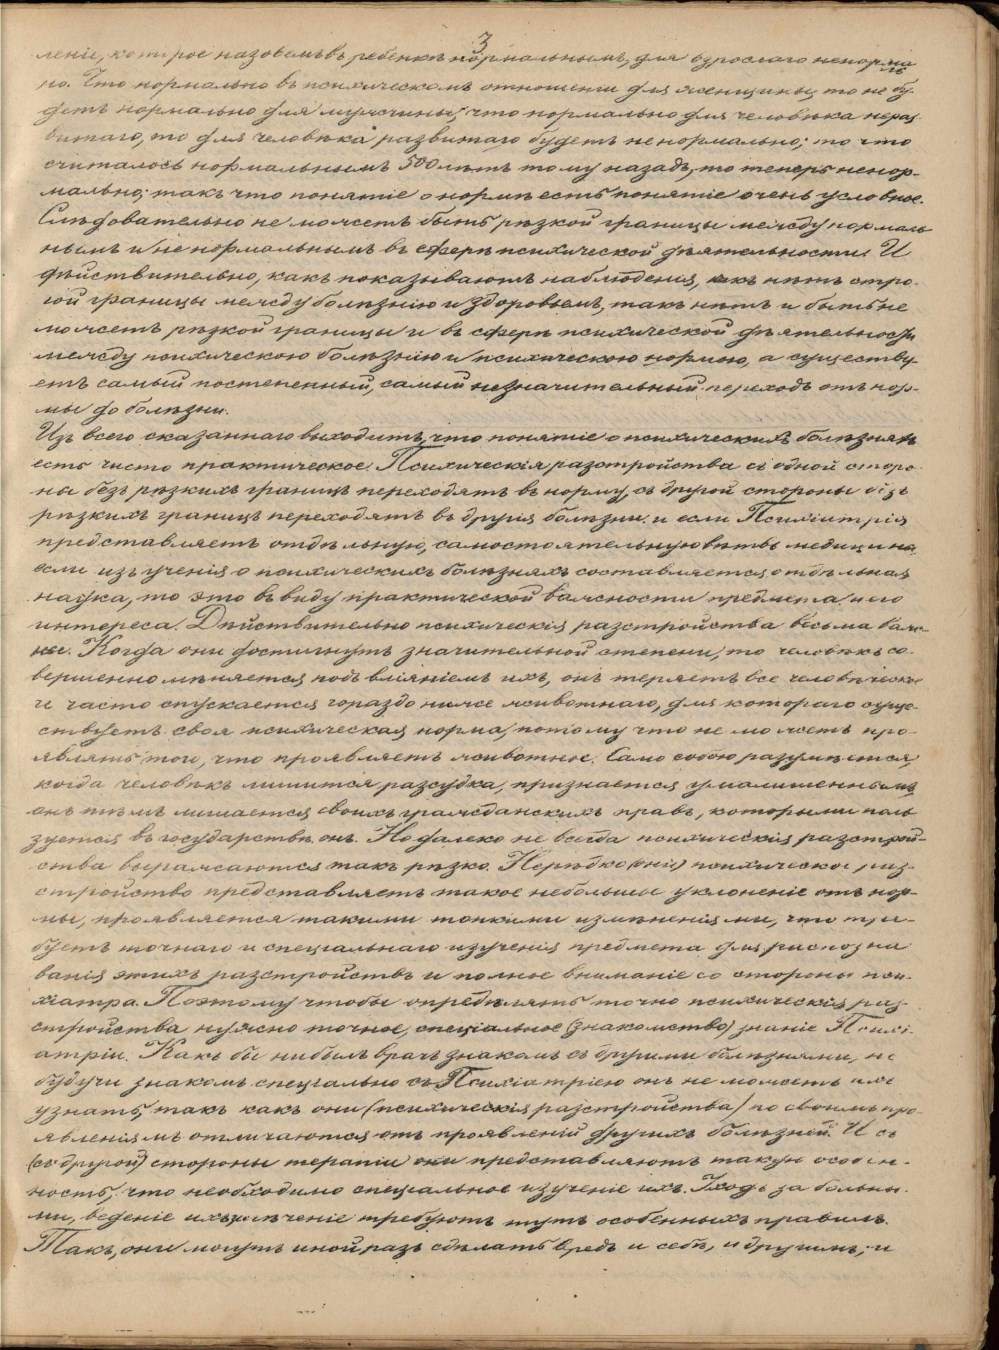 3
леніе, которое назовемъ въ ребенкѣ нормальнымъ, для взрослаго ненормаль
но. Что нормально въ психическомъ отношеніи для женщины, то не бу-
детъ нормально для мужчины; что нормально для человѣка нераз-
витаго, то для человѣка развитаго будетъ ненормально; то что
считалось нормальнымъ 500 лѣтъ тому назадъ, то теперь ненор-
мально; такъ что понятіе о нормѣ есть понятіе очень условное.
Слѣдовательно не можетъ быть рѣзкой границы между нормаль
нымъ и не нормальнымъ въ сферѣ психической дѣятельности. И
дѣйствительно, какъ показываютъ наблюденія, какъ нѣтъ стро-
гой границы между болѣзнію и здоровьемъ, такъ нѣтъ и быть не
можетъ рѣзкой границы и въ сферѣ психической дѣятельности
между психическою болѣзнію и психическою нормою, а существу-
етъ самый постепенный, самый незначительный переходъ отъ нор-
мы до болѣзни.
Изъ всего сказаннаго выходитъ, что понятіе о психическихъ болѣзняхъ
есть чисто практическое. Психическія разстройства съ одной сторо-
ны безъ рѣзкихъ границъ переходятъ въ норму, съ другой стороны безъ
рѣзкихъ границъ переходятъ въ другія болѣзни. и если Психіатрія
представляетъ отдѣльную, самостоятельную вѣтвь медицины
если изъ ученія о психическихъ болѣзняхъ составляется отдѣльная
наука, то это въ виду практической важности предмета и его
интереса. Дѣйствительно психическія разстройства весьма важ-
ны. Когда они достигнутъ значительной степени, то человѣкъ со-
вершенно мѣняется подъ вліяніемъ ихъ, онъ теряетъ все человѣческое
и часто спускается гораздо ниже животнаго, для котораго суще-
ствуетъ своя психическая норма, потому что не можетъ про-
являть того, что проявляетъ животное. Само собою разумѣется
когда человѣкъ лишится разсудка, признается умалишеннымъ
онъ тѣмъ лишается своихъ гражданскихъ правъ, которыми поль
зуется въ государствѣ онъ. Но далеко не всегда психическія разстрой-
ства выражаются такъ рѣзко. Нерѣдко (оні) психическое раз-
стройство представляетъ такое небольшое уклоненіе отъ нор-
мы, проявляется такими тонкими измѣненіями, что тре-
буетъ точнаго и спеціальнаго изученія предмета для распозна
ванія этихъ разстройствъ и полное вниманіе со стороны пси-
хіатра. Поэтому чтобы опредѣлять точно психическія раз-
стройства нужно точное, спеціальное (знакомство) знаніе Психі-
атріи. Какъ бы ни былъ врачъ знакомъ съ другими болѣзнями, не
будучи знакомъ спеціально съ Психіатріею онъ не можетъ ихъ
узнать, такъ какъ они (психическія разстройства) по своимъ про-
явленіямъ отличаются отъ проявленій другихъ болѣзней. И съ
(съ другой) стороны терапіи они представляютъ такую особен-
ность, что необходимо спеціальное изученіе ихъ. Уходъ за больны-
ми, веденіе ихъ леченіе требуютъ тутъ особенныхъ правилъ.
Такъ, они могутъ иной разъ сдѣлать вредъ и себѣ, и другимъ; и